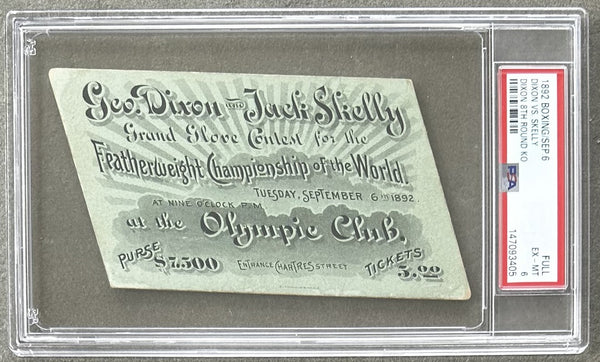 Geo. Dixon and Jack Skelly
Grand Glove Contest for the
Featherweight Championship of the World.
TUESDAY, SEPTEMBER 6TH 1892.
AT NINE O'CLOCK P.M.
at the Olympic Club,
PURSE $7,500
ENTRANCE CHARTRES STREET
TICKETS 5.00
1892 BOXING/SEP. 6
DIXON VS. SKELLY
DIXON 8TH ROUND KO
PSA
FULL
EX-MT 6
147093405